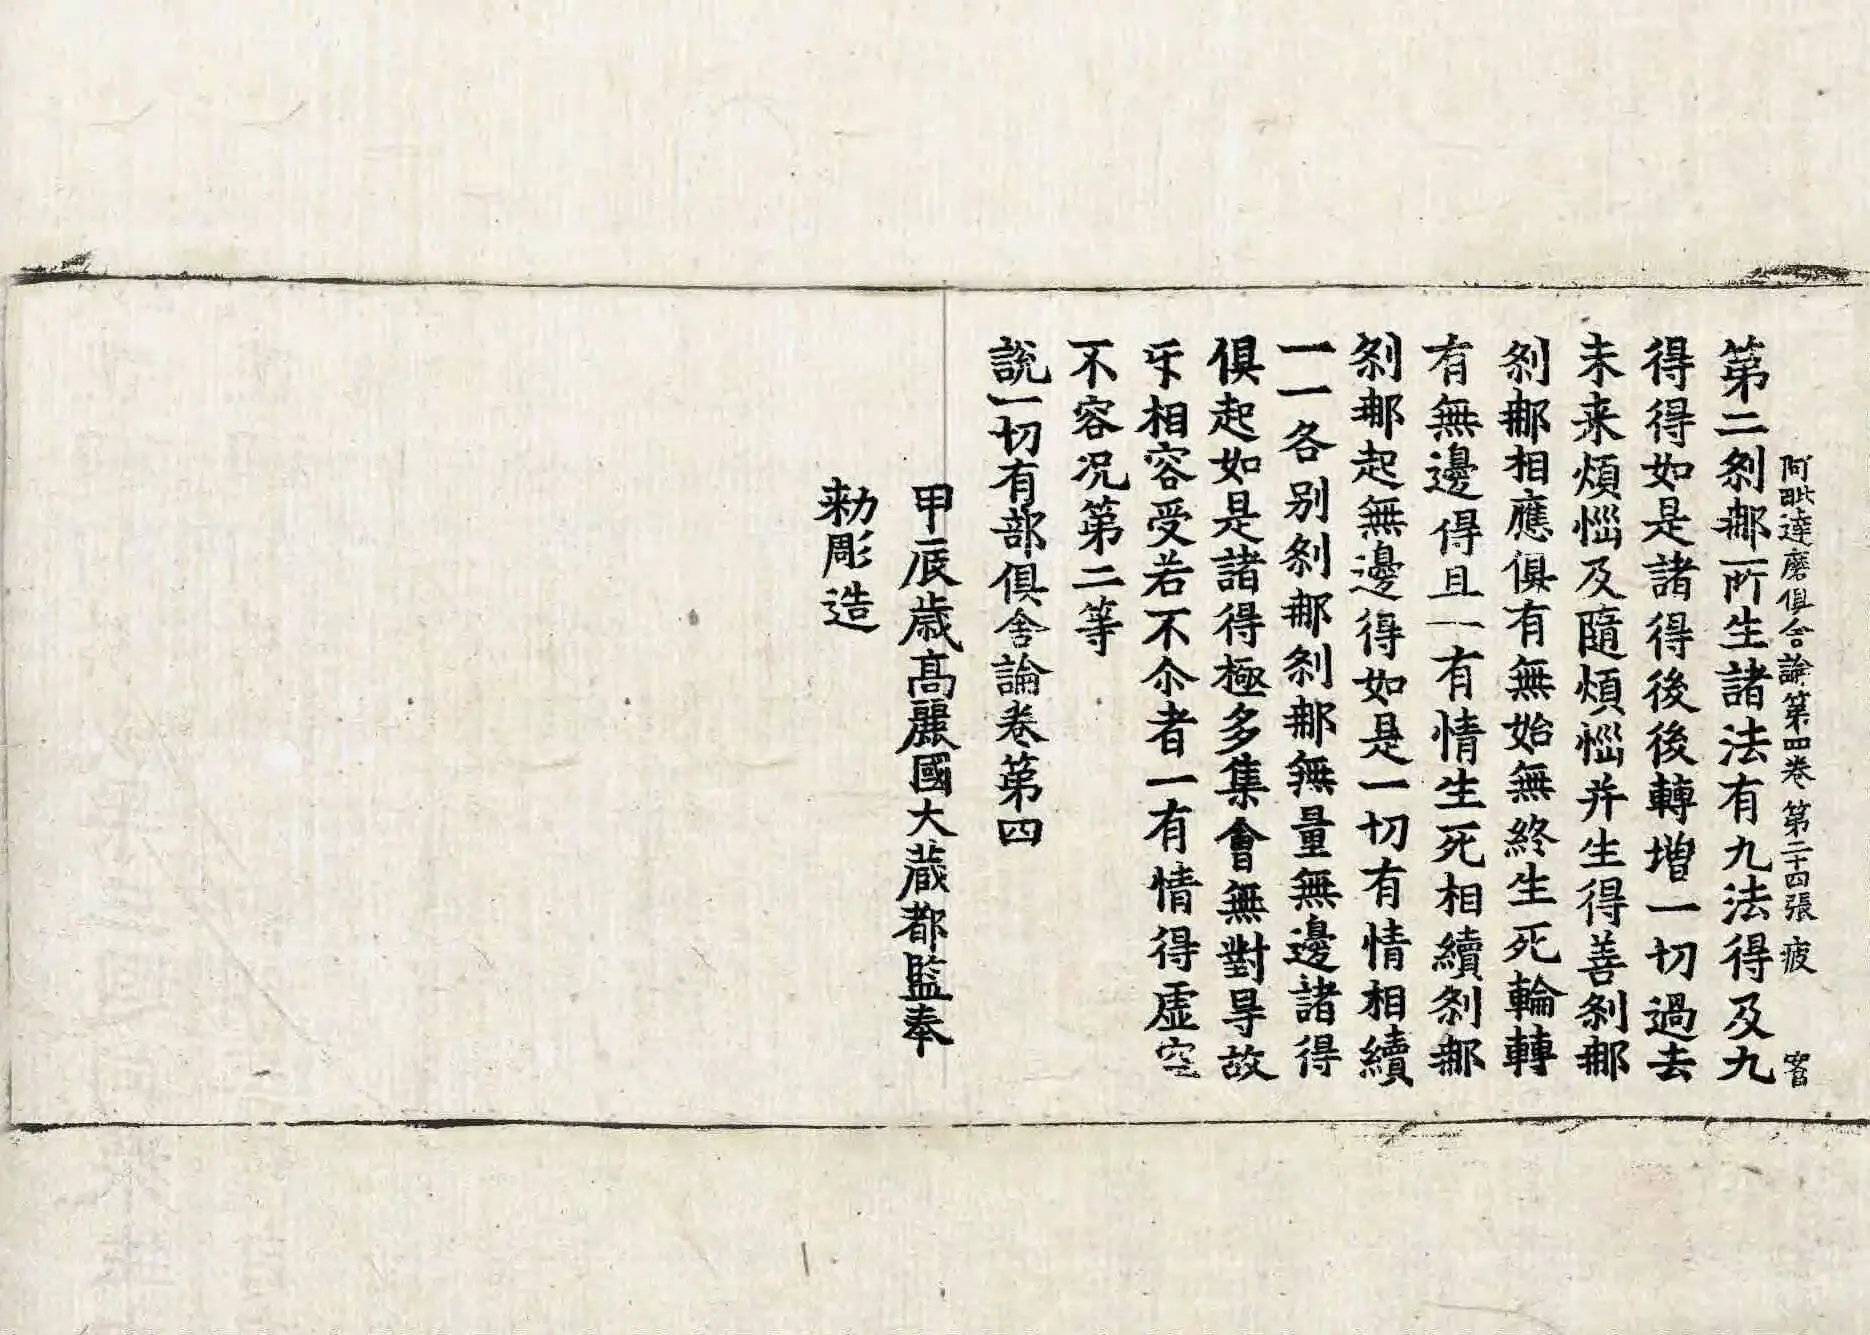 阿毗達磨俱舍論第四卷 第二十四張 疲
第二刹那所生諸法有九法得及九
得得如是諸得後後轉增一切過去
未来煩惱及隨煩惱并生得善刹那
刹那相應俱有無始無終生死輪轉
有無邊得且一有情生死相續刹那
刹那起無邊得如是一切有情相續
一一各别刹那刹那無量無邊諸得
俱起如是諸得極多集會無對㝵故
㸦相容受若不尒者一有情得虛空
不容况第二等
說一切有部俱舍論卷第四
甲辰歲高麗國大藏都監奉
勑彫造